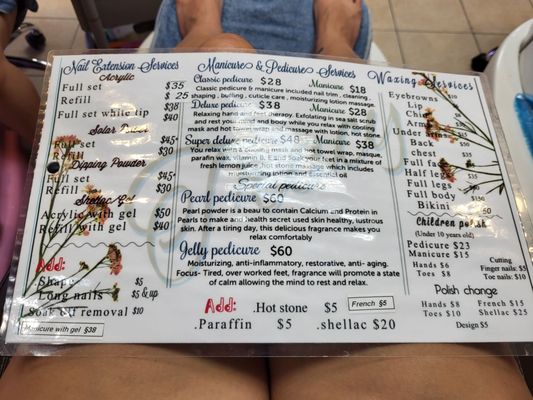 Nail Extension Services
Acrylic
Full set $35
Refill $ 25
$38
Full set white tip $40
Solar
Full set $45+
Refill $30
Dipping Powder
Full set $45+
Refill $30
Shellac Gel
Acrylic with gel $50
Refill with gel $40
Add:
Shape $5
Long nails $5 & up
Soak off removal $10
Manicure with gel $38
Manicure & Pedicure Services
Classic pedicure $28 Manicure $18
Classic pedicure & manicure included nail trim, cleaning,
shaping, buffing, cuticle care, moisturizing lotion massage
Deluxe pedicure $38 Manicure $28
Relaxing hand and feet therapy. Exfoliating in sea salt scrub
and rest your mind and body while you relax with cooling
mask and hot towel wrap and massage with lotion, hot stone
Super deluxe pedicure $48 Manicure $38
You relax with a cooling mask and hot towel wrap, masque,
parafin wax, vitamin B, E and Soak your feet in a mixture of
fresh lemon juice, hot stones massage, which includes
moisturizing lotion and essential oil
Special pedicure
Pearl pedicure $60
Pearl powder is a beau to contain Calcium and Protein in
Pearls to make and health secret used skin healthy, lustrous
skin. After a tiring day, this delicious fragrance makes you
relax comfortably
Jelly pedicure $60
Moisturizing, anti-inflammatory, restorative, anti- aging.
Focus- Tired, over worked feet, fragrance will promote a state
of calm allowing the mind to rest and relax.
Add: .Hot stone $5 French $5
.Paraffin $5 .shellac $20
Waxing Services
Eyebrowns
Lip
Chin
Arm
Under
Back
chest
Full
Half legs
Full legs
Full body
Bikini
Children polish
(Under 10 years old)
Pedicure $23
Manicure $15
Hands $6
Toes $8
Cutting
Finger nails $5
Toe nails $10
Polish change
Hands $8 French $15
Toes $10 Shellac $25
Design $5